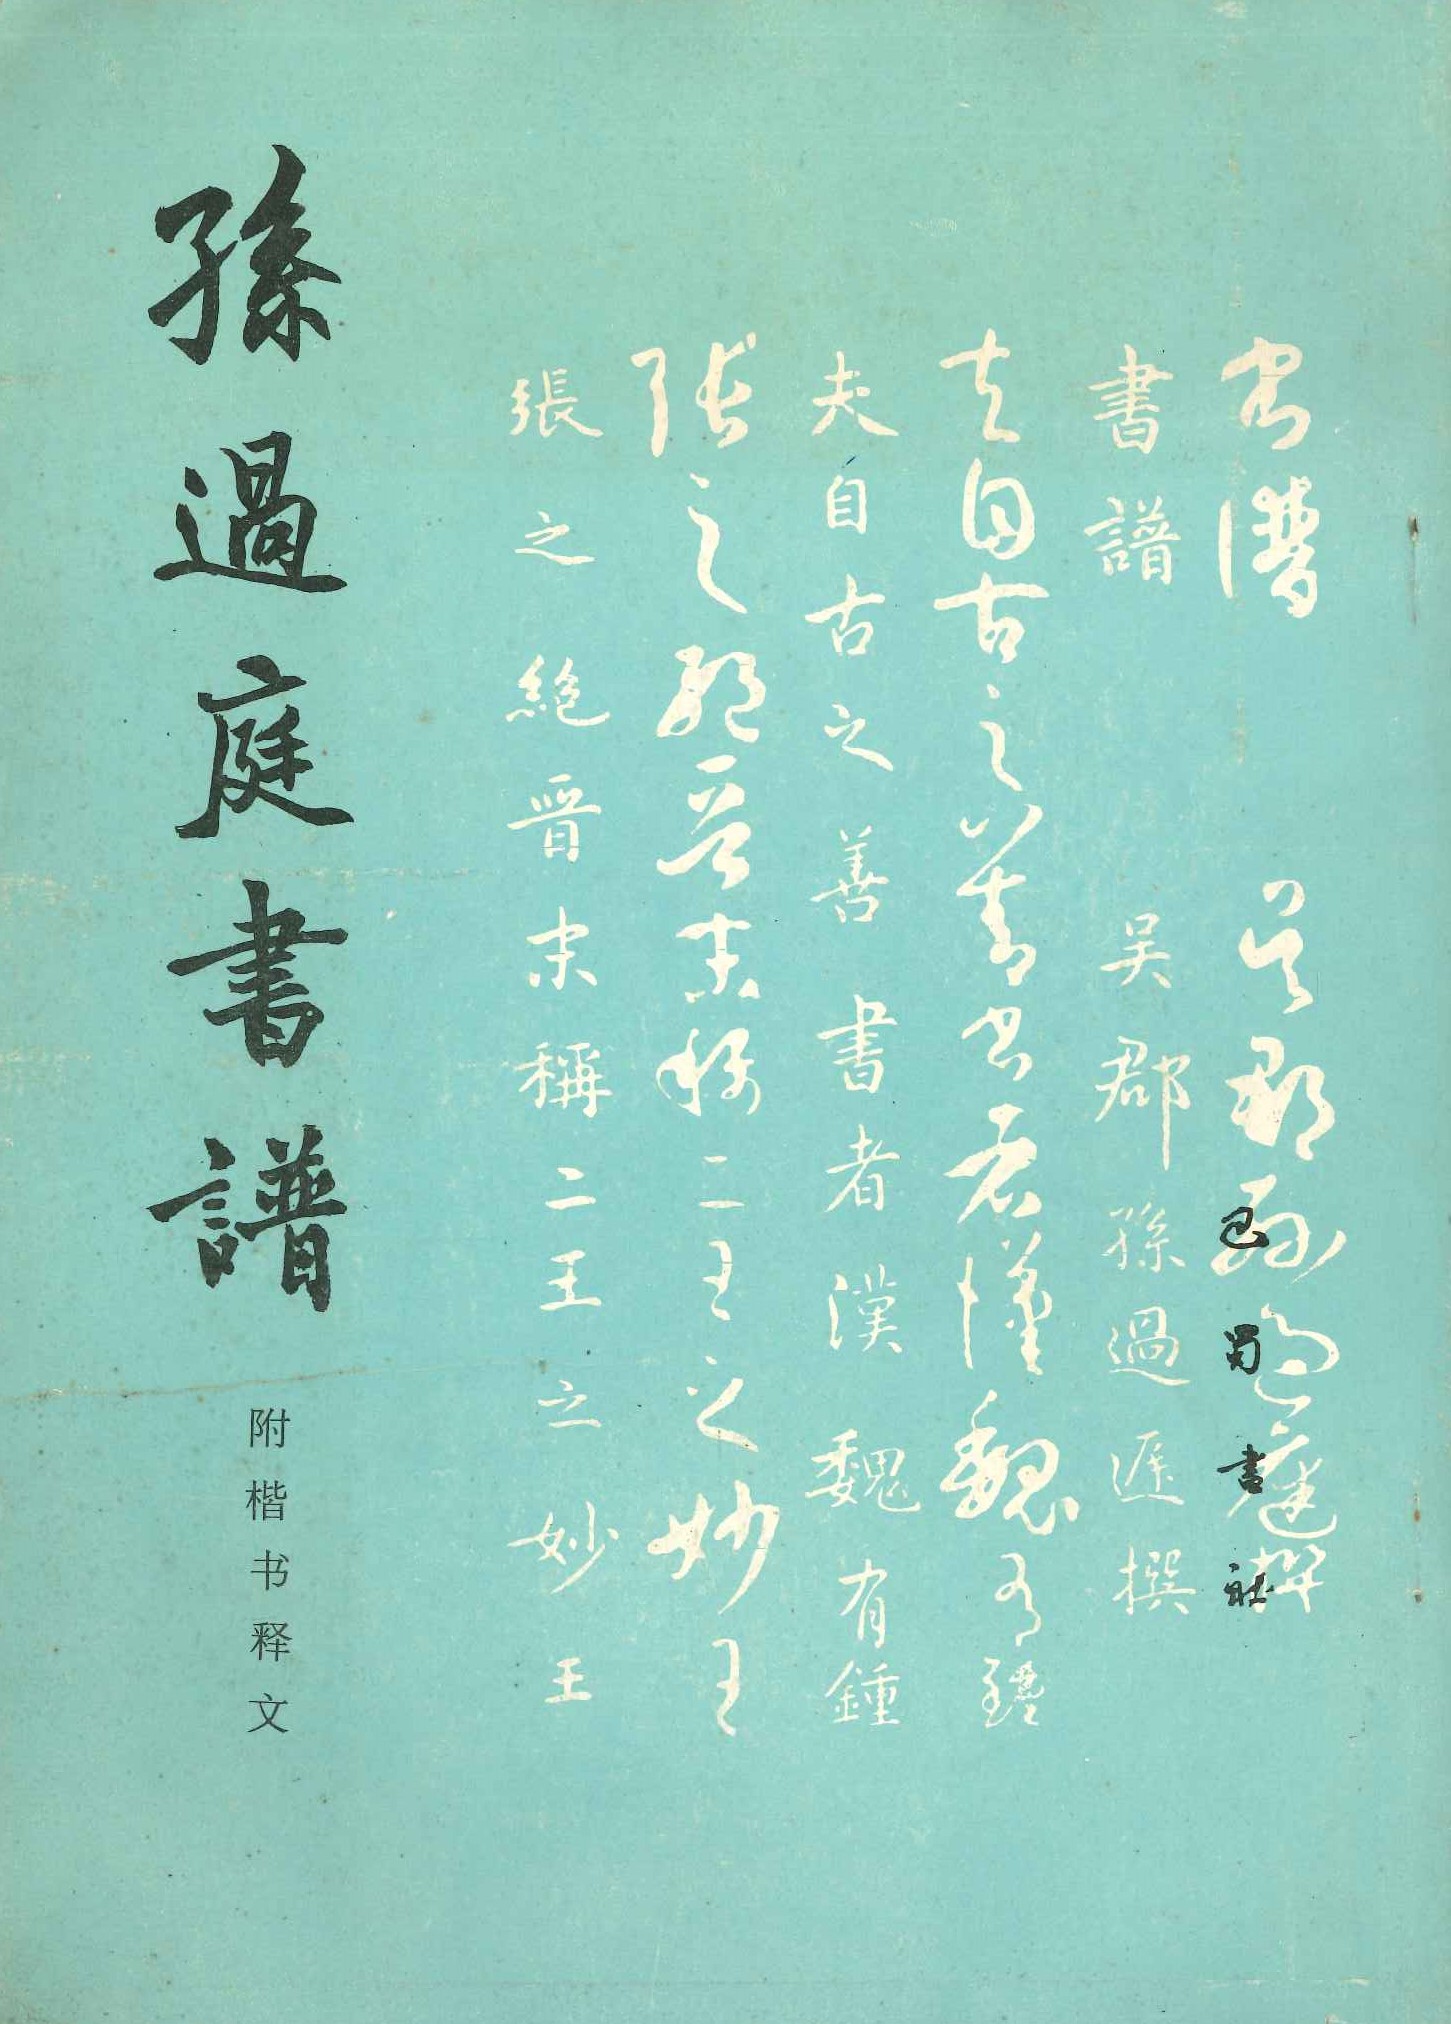 書譜 吳郡孫過庭撰
書譜 吳郡孫過庭撰
夫自古之善書者漢魏有鍾
夫自古之善書者漢魏有鍾
張之絕晉末稱二王之妙王
張之絕晉末稱二王之妙王
孫過庭書譜
附楷书释文
巴蜀書社